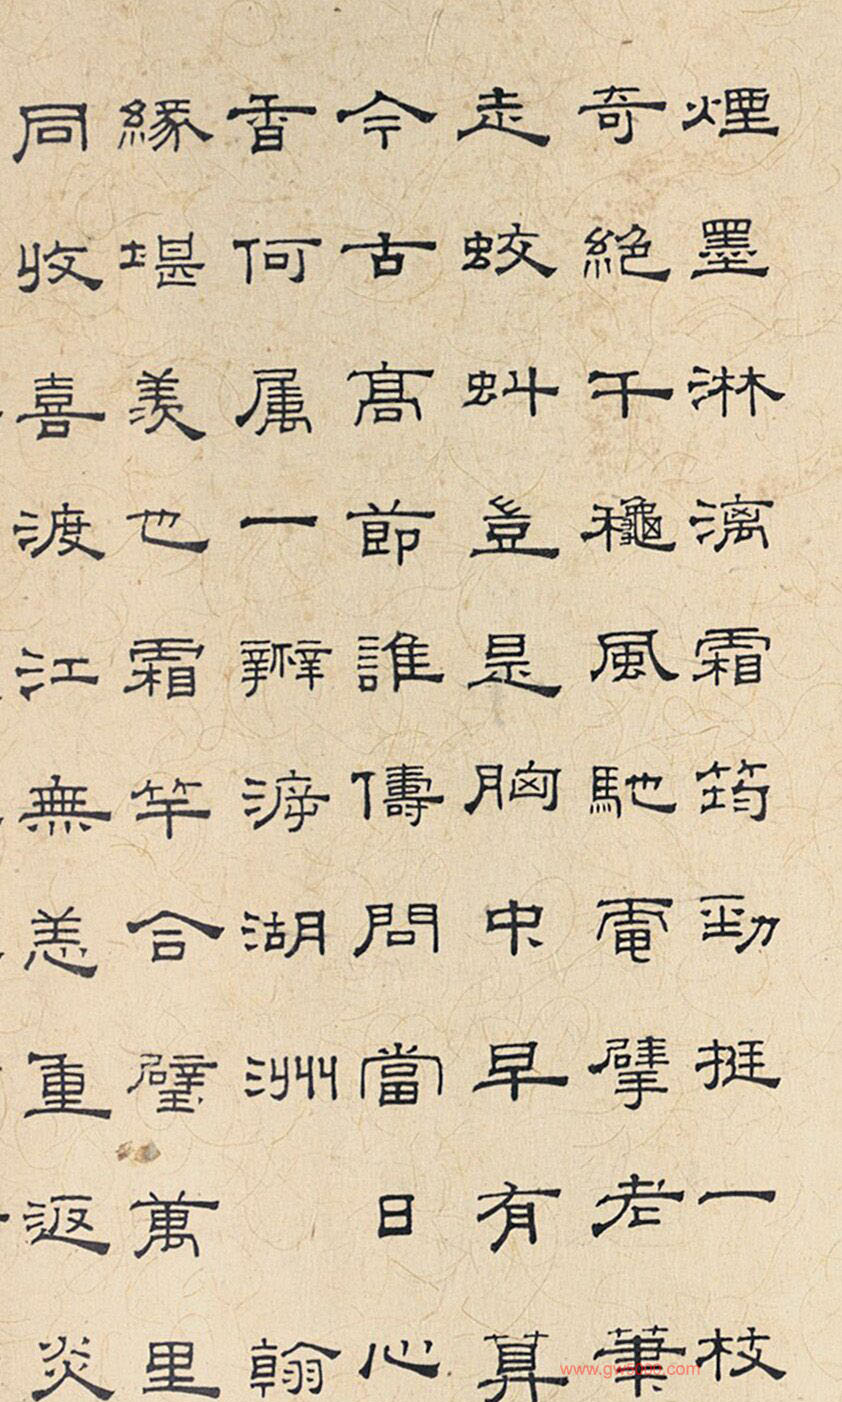 煙墨淋漓霜筠勁挺一枝
奇絕千龝風馳電擘老筆
走蛟虯豈是胸中早有算
今古髙節誰儔問當日心
香何属一瓣湖洲 翰
緣堪羨也霜竿合璧萬里
同收喜渡江無恙重返炎
www.gw5000.com